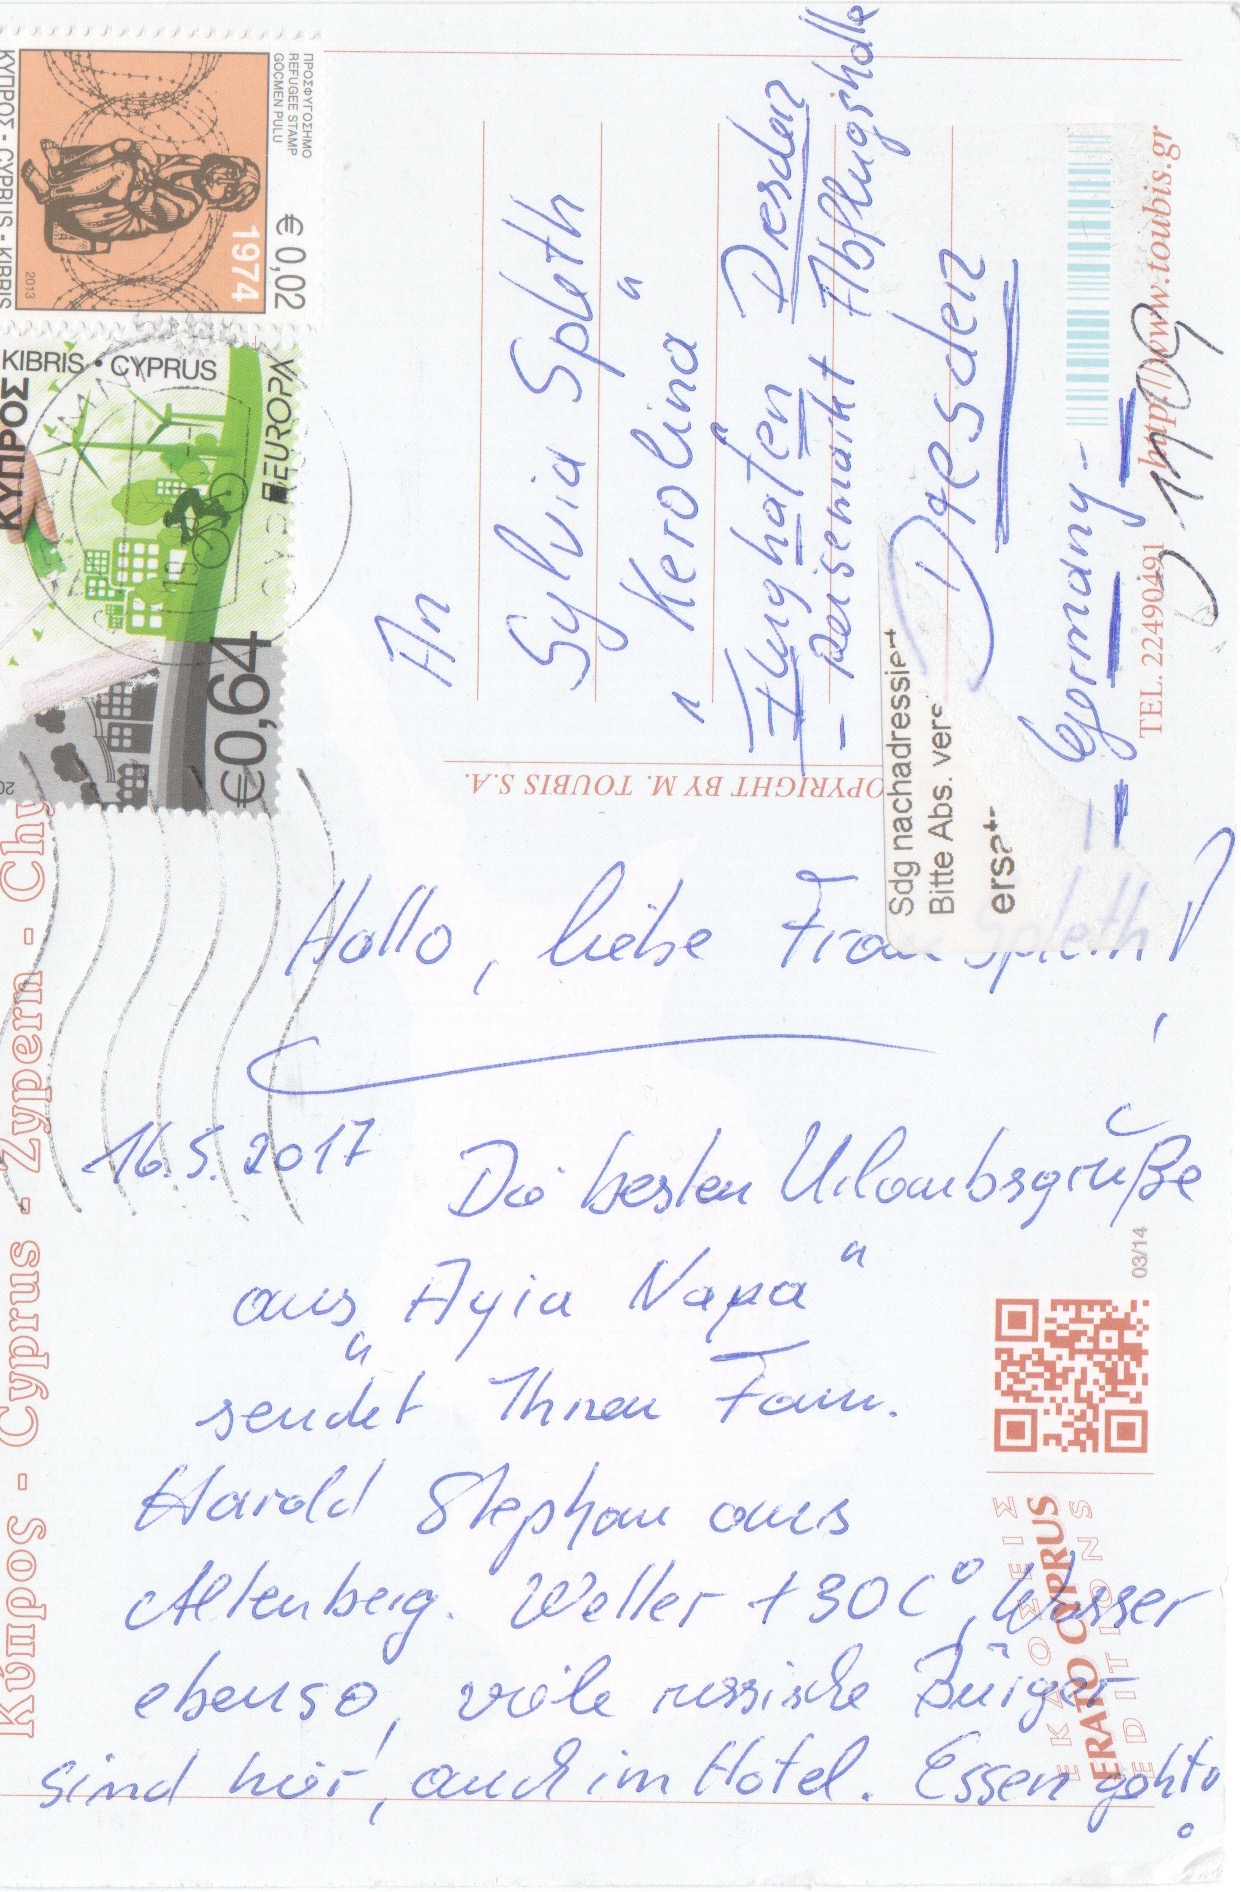 ΠΡΟΣΦΥΓΟΣΗΜΟ
REFUGEE STAMP
GÖÇMEN PULU
€ 0,02
1974
2013
ΚΥΠΡΟΣ - CYPRUS - KIBRIS
KIBRIS • CYPRUS
ΚΥΠΡΟΣ
EUROPA
€0,64
An
Sylvia Speth
"Kerolina"
Flughafen Dresden
- Reisemarkt Abflugshalle
Dresden
- Germany -
01109
Sdg nachadressiert
Bitte Abs. vers
ersat
http://www.toubis.gr
TEL. 2249049
COPYRIGHT BY M. TOUBIS S.A.
Κύπρος - Cyprus - Zypern - Chy
Hallo, liebe Frau Speth!
16.5.2017
Die besten Urlaubsgrüße
aus "Ayia Napa"
sendet Ihnen Fam.
Harald Stephan aus
Altenberg. Wetter +30C°, Wasser
ebenso, viele russische Bürger
sind hier, auch im Hotel. Essen geht
03/14
ΕΚΔΟΣΕΙΣ
ERATO CYPRUS
EDITIONS